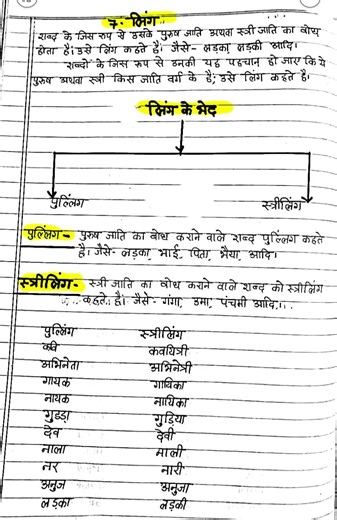 7. लिंग
शब्द के जिस रूप से उसके पुरुष जाति अथवा स्त्री जाति का बोध
होता है। उसे लिंग कहते हैं। जैसे- लड़का, लड़की आदि।
शब्दों के जिस रूप से उनकी यह पहचान हो जाए कि ये
पुरुष अथवा स्त्री किस जाति वर्ग के है; उसे लिंग कहते है।
लिंग के भेद
पुल्लिंग स्त्रीलिंग
पुल्लिंग - पुरुष जाति का बोध कराने वाले शब्द पुल्लिंग कहते
है। जैसे- लड़का, भाई, पिता, भैया, आदि।
स्त्रीलिंग- स्त्री जाति का बोध कराने वाले शब्द को स्त्रीलिंग
कहते है। जैसे - गंगा, उमा, पंचमी आदि।
पुल्लिंग स्त्रीलिंग
कवि कवयित्री
अभिनेता अभिनेत्री
गायक गायिका
नायक नायिका
गुड्डा गुड़िया
देव देवी
माला माली
नर नारी
अनुज अनुजा
लड़का लड़की